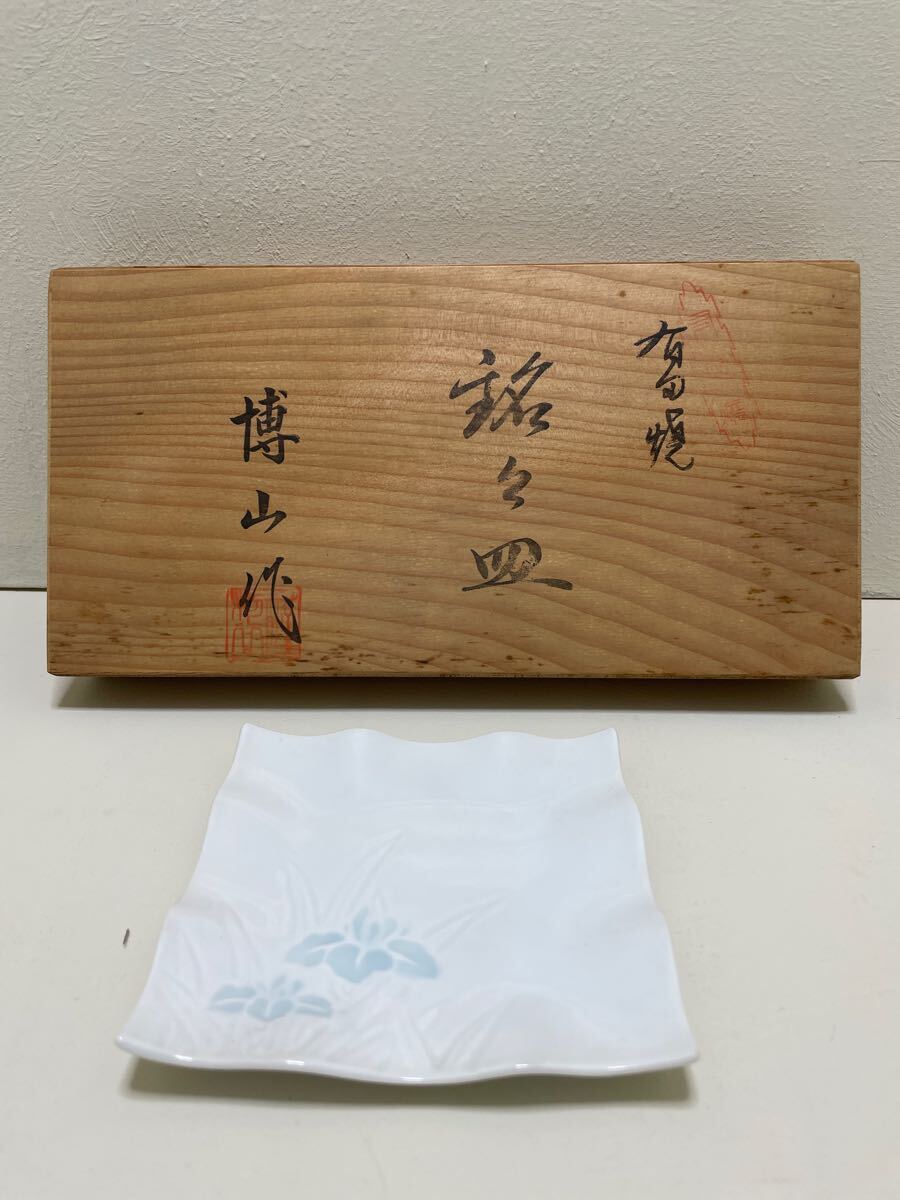 有田焼
銘々皿
博山作